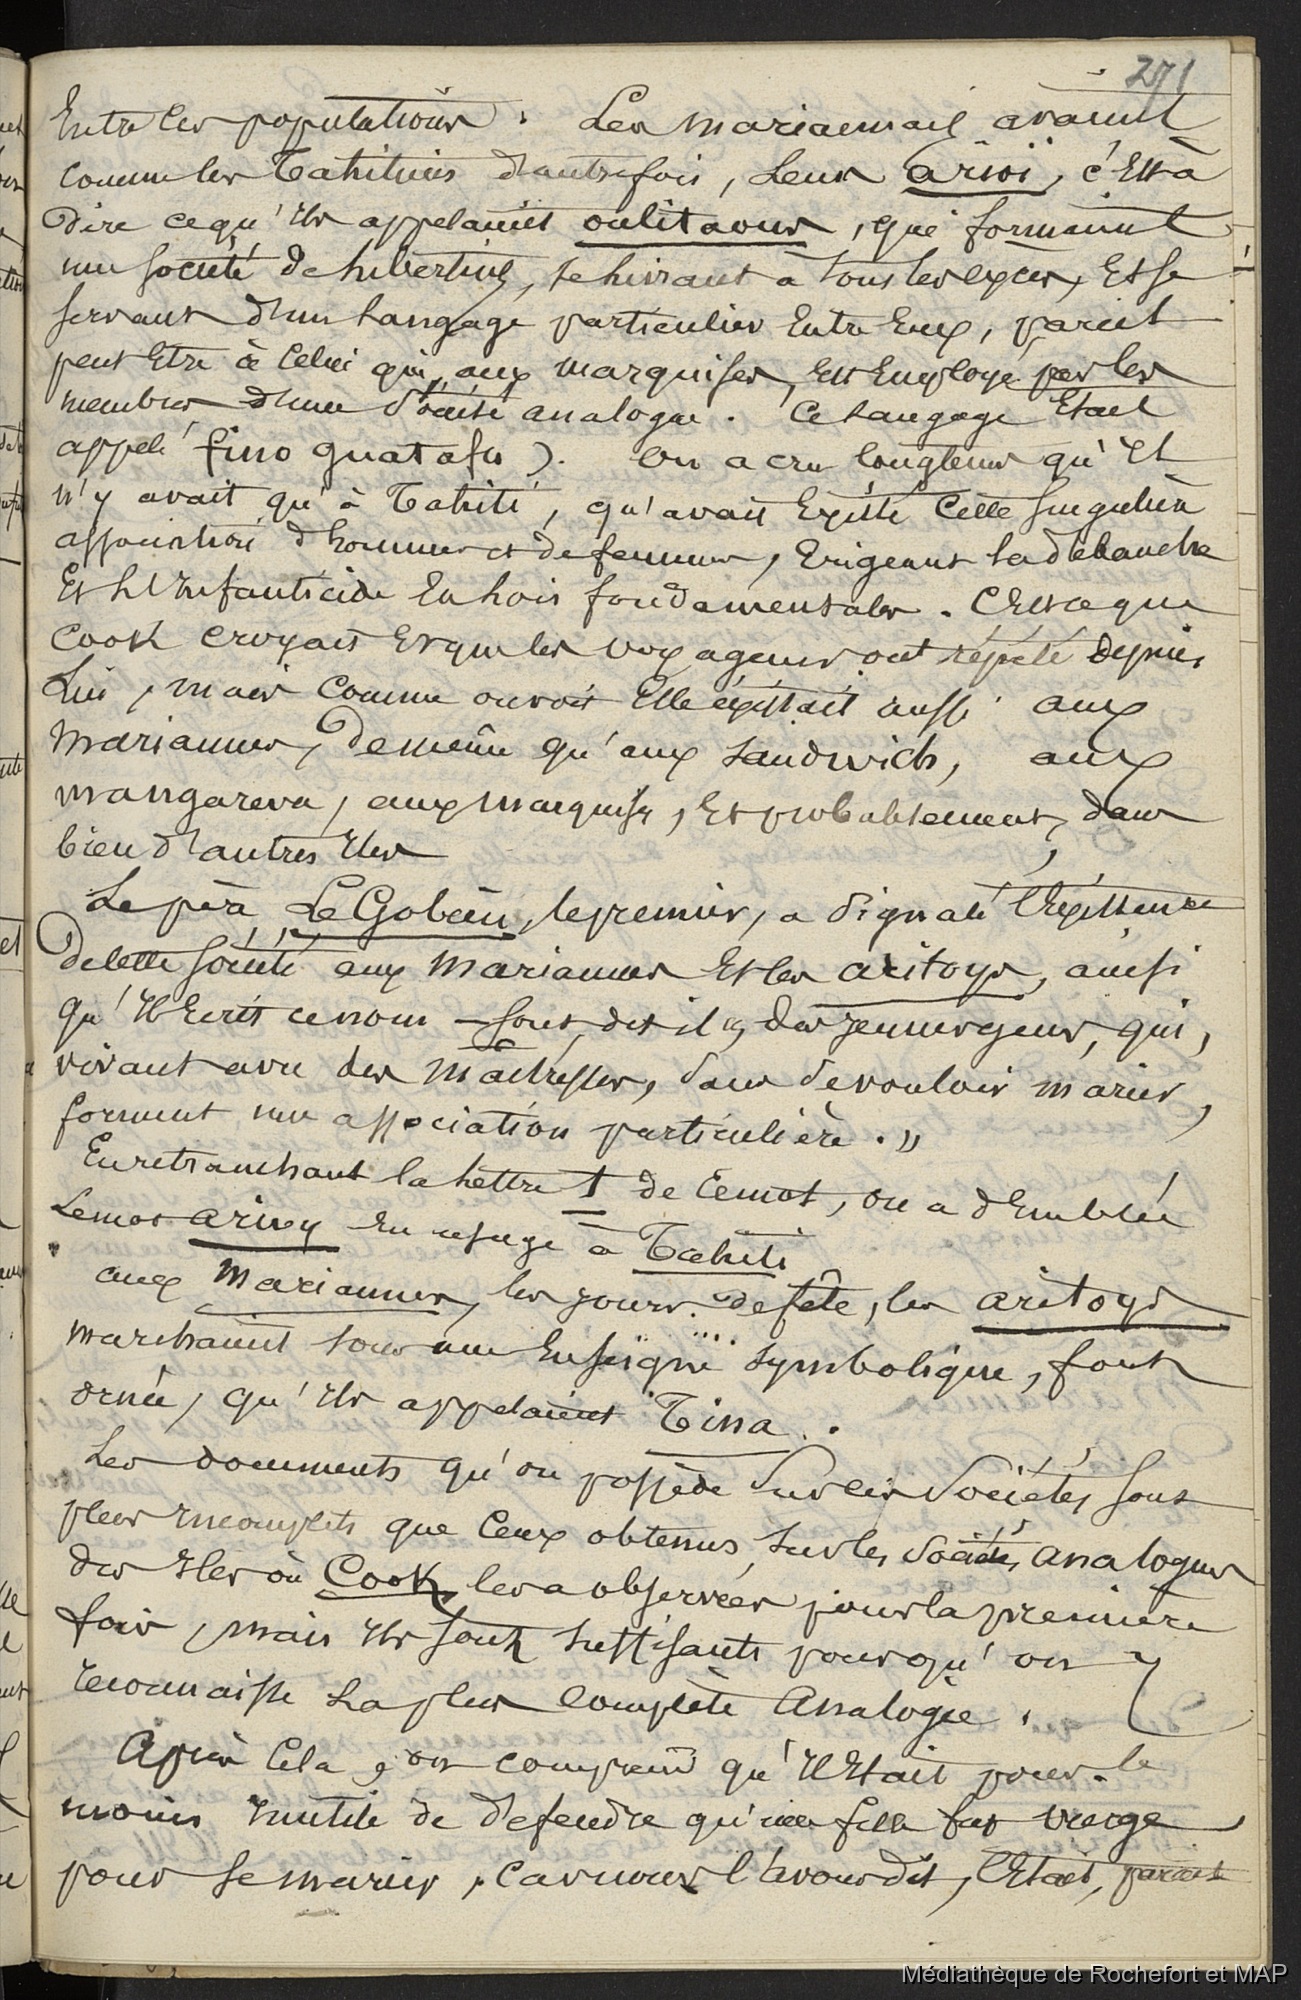 271
Entre les populations. Les mariannais avaient
comme les Tahitiens d'autrefois, leur arioï, c'est à
dire ce qu'ils appelaient oulitaous, qui formaient
une société de libertins, se livrant à tous les excès, et se
servant d'un langage particulier entre eux, pareil
peut être à celui qui, aux marquises, est employé par les
membres d'une société analogue. Ce langage était
appelé fino gualafu). On a cru longtems qu'il
n'y avait qu'à Tahiti, qu'avait existé cette singulière
association d'hommes et de femmes, érigeant la débauche
et l'infanticide en lois fondamentales. C'est ce que
Cook croyait et que les voyageurs ont répété depuis
lui, mais comme on voit elle existait aussi aux
Mariannes, de même qu'aux Sandwich, aux
mangareva, aux marquises, et probablement, dans
bien d'autres îles
Le père Le Gobien, le premier, a signalé l'existence
de cette société aux Mariannes et les aritoys, ainsi
qu'il écrit ce nom – sont, dit il, "des jeunes gens, qui,
vivant avec des maîtresses, sans se vouloir marier,
forment une association particulière."
En retranchant la lettre t de ce mot, on a d'emblée
le mot arioy en usage à Tahiti
aux Mariannes, les jours de fête, les aritoys
marchaient sous une enseigne symbolique, fort
ornée, qu'ils appelaient Tina.
Les documents qu'on possède sur ces sociétés sont
plus incomplets que ceux obtenus sur les sociétés analogues
des îles où Cook les a observées pour la première
fois, mais ils sont suffisants pour qu'on
reconnaisse la plus complète analogie.
Après cela, on comprend qu'il était pour le
moins inutile de défendre qu'une fille fut vierge
pour se marier, car nous l'avons dit, c'était, parait
Médiathèque de Rochefort et MAP